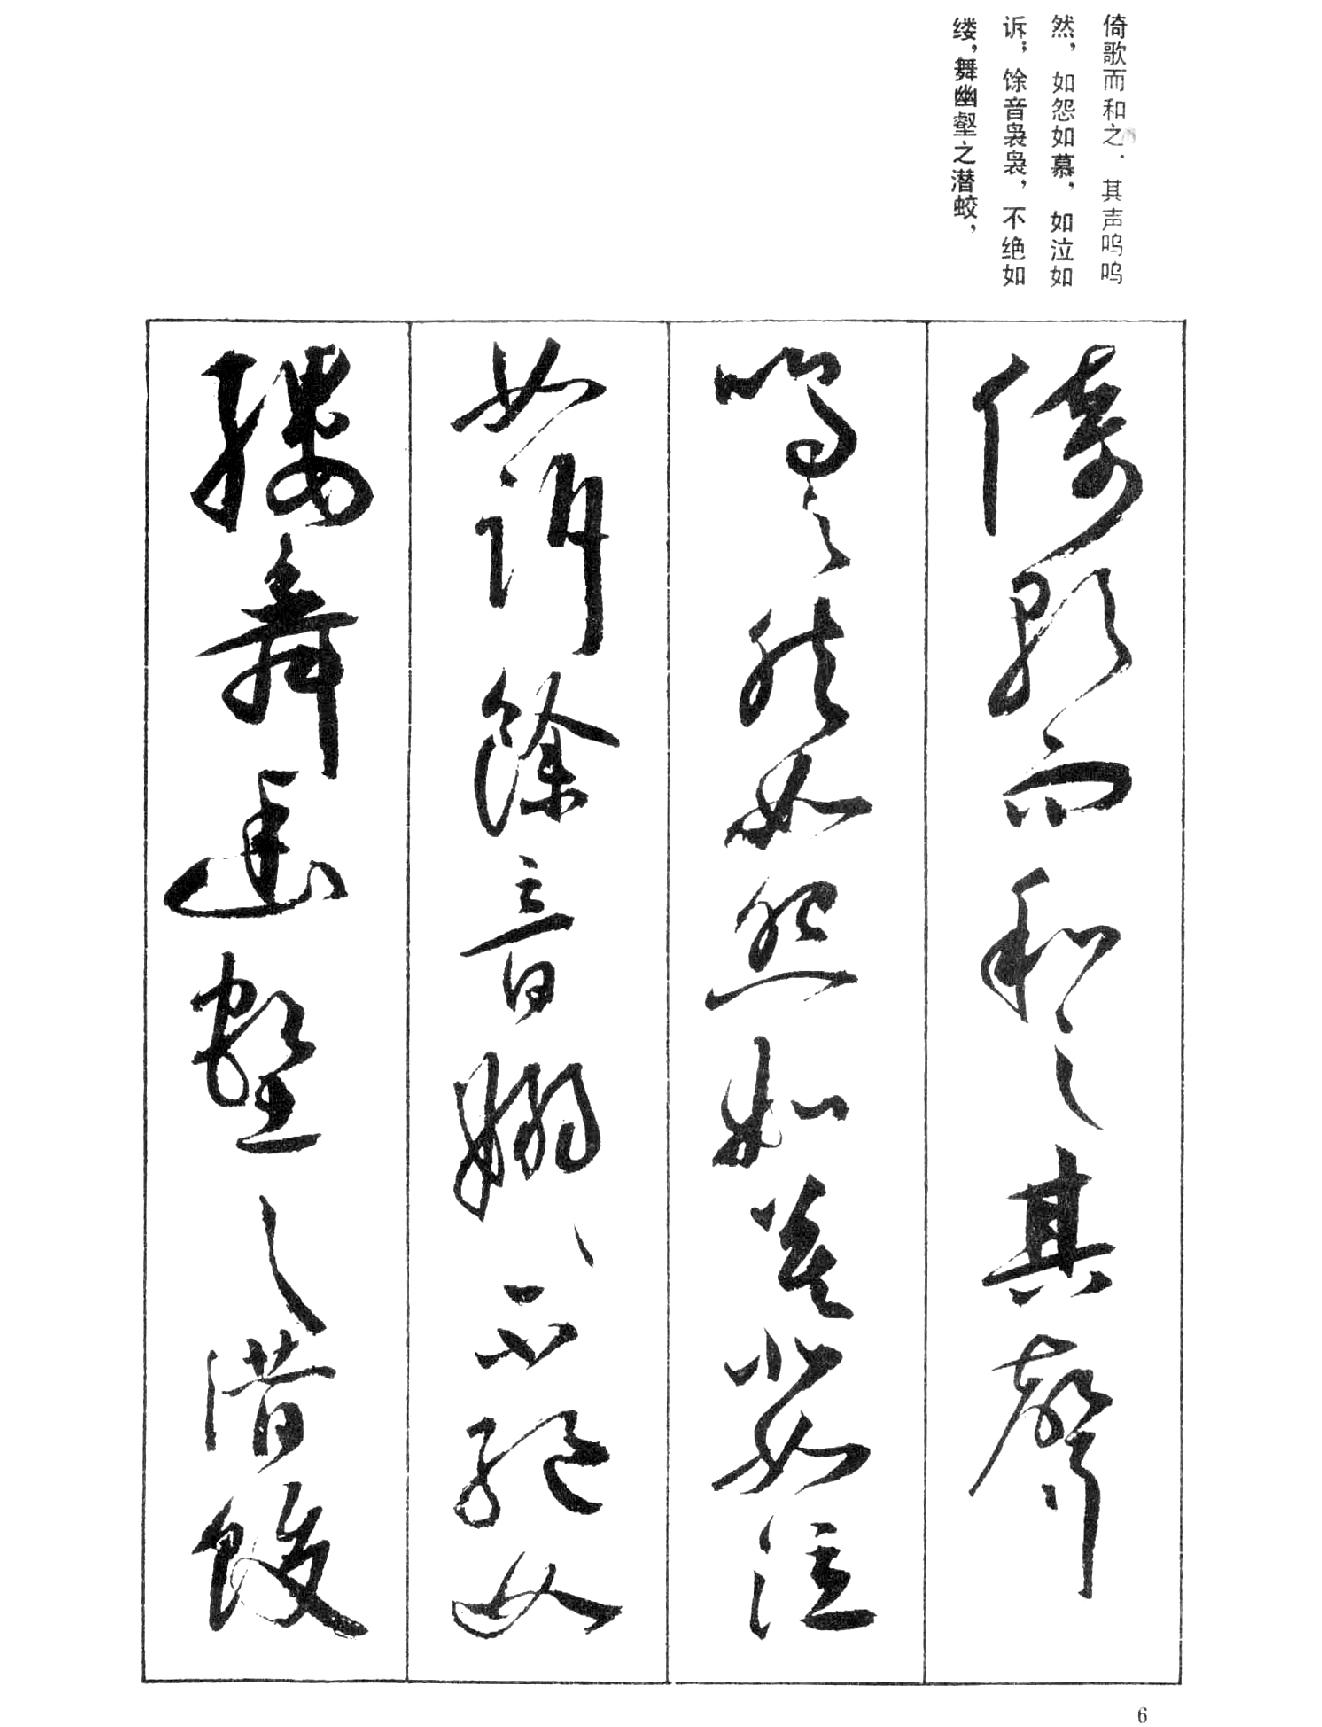 倚歌而和之．其声呜呜
然，如怨如慕，如泣如
诉；馀音袅袅，不绝如
缕，舞幽壑之潜蛟，
倚歌而和之其聲
嗚〻然如怨如慕如泣
如訴餘音嫋〻不絕如
縷舞幽壑之潛蛟
6